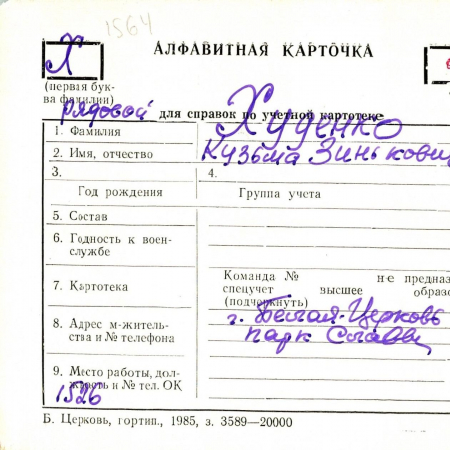 1564
Х
АЛФАВИТНАЯ КАРТОЧКА
(первая бук-
ва фамилии)
рядовой для справок по учетной картотеке
1. Фамилия Худенко
2. Имя, отчество Кузьма Зинькович
3. 4.
Год рождения Группа учета
5. Состав
6. Годность к воен-
службе
Команда № не предназ
7. Картотека спецучет высшее образо
(подчеркнуть)
8. Адрес м-житель-
ства и № телефона
г. Белая-Церковь
парк Славы
9. Место работы, дол-
жность и № тел. ОК
1526
Б. Церковь, гортип., 1985, з. 3589—20000